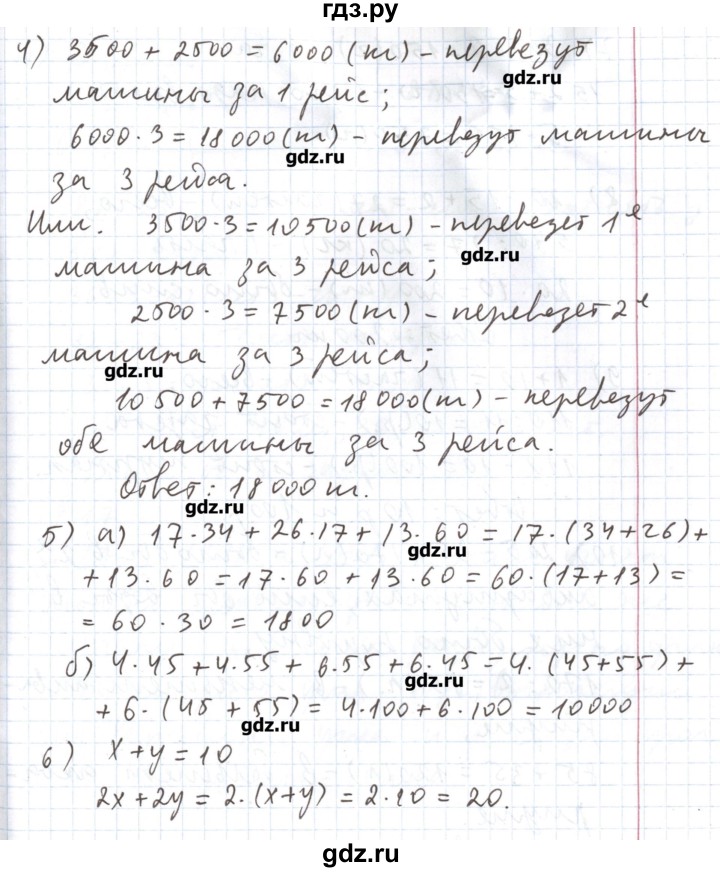 гдз.ру
4) 3500 + 2500 = 6000 (т) - перевезут
gdz.ru
машины за 1 рейс;
6000 · 3 = 18 000 (т) - перевезут машины
gdz.ru
за 3 рейса.
Или. 3500 · 3 = 10500 (т) - перевезет 1е
gdz.ru
машина за 3 рейса;
2500 · 3 = 7500 (т) - перевезет 2е
машина за 3 рейса;
gdz.ru
10 500 + 7500 = 18 000 (т) - перевезут
обе машины за 3 рейса.
Ответ: 18 000 т.
gdz.ru
5) а) 17·34 + 26·17 + 13·60 = 17·(34+26) +
gdz.ru
+ 13·60 = 17·60 + 13·60 = 60·(17+13) =
= 60 · 30 = 1800
б) 4·45 + 4·55 + 6·55 + 6·45 = 4·(45+55) +
gdz.ru
+ 6·(45 + 55) = 4·100 + 6·100 = 10000
gdz.ru
6) x + y = 10
2x + 2y = 2·(x+y) = 2·10 = 20.
gdz.ru